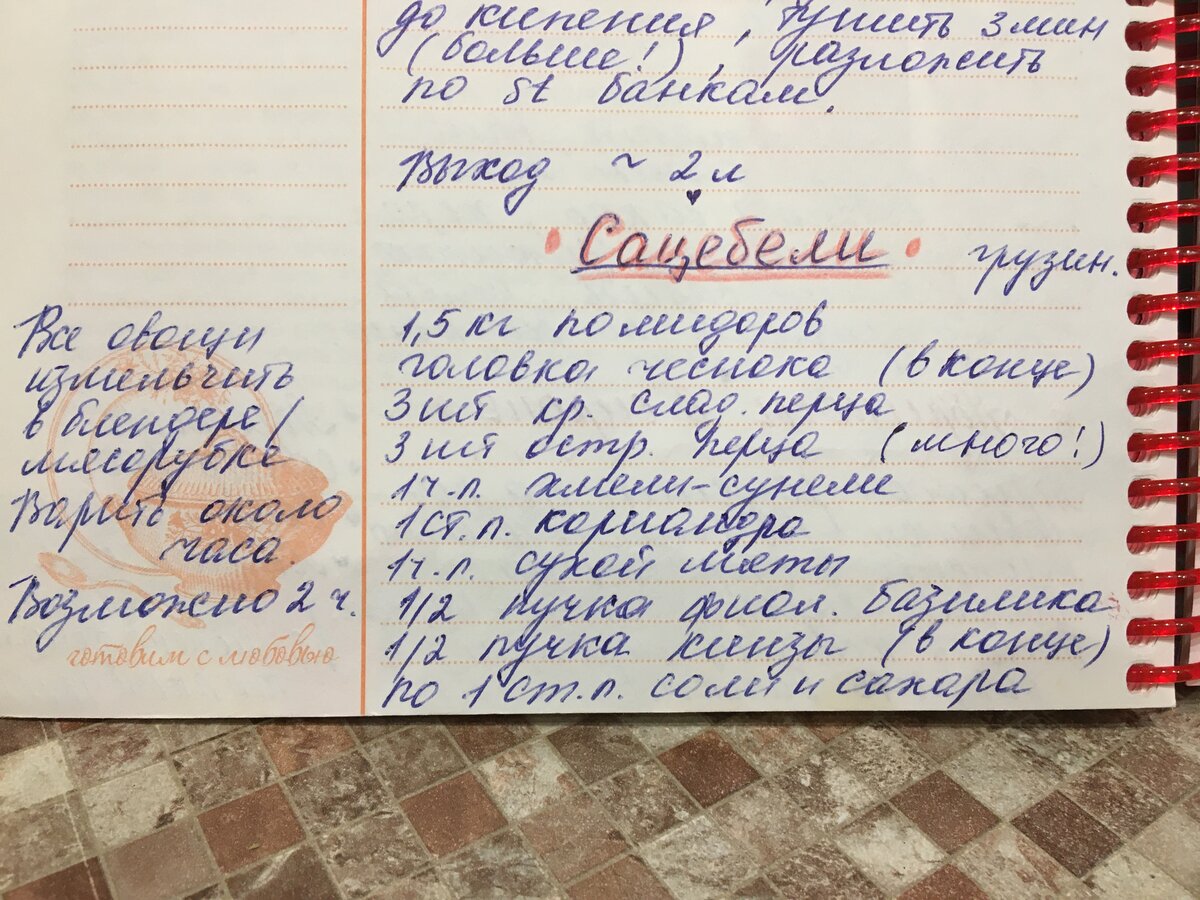 до кипения, тушить 3 мин
(больше!), разложить
по st банкам.
Выход ~ 2 л
• Сацебели •
грузин.
1,5 кг помидоров
головка чеснока (в конце)
3 шт кр. слад. перца
3 шт остр. перца (много!)
1 ч.л. хмели-сунели
1 ст.л. кориандра
1 ч.л. сухой мяты
1/2 пучка фиол. базилика
1/2 пучка кинзы (в конце)
по 1 ст.л. соли и сахара
Все овощи
измельчить
в блендере/
мясорубке
Варить около
часа.
Возможно 2 ч.
готовим с любовью